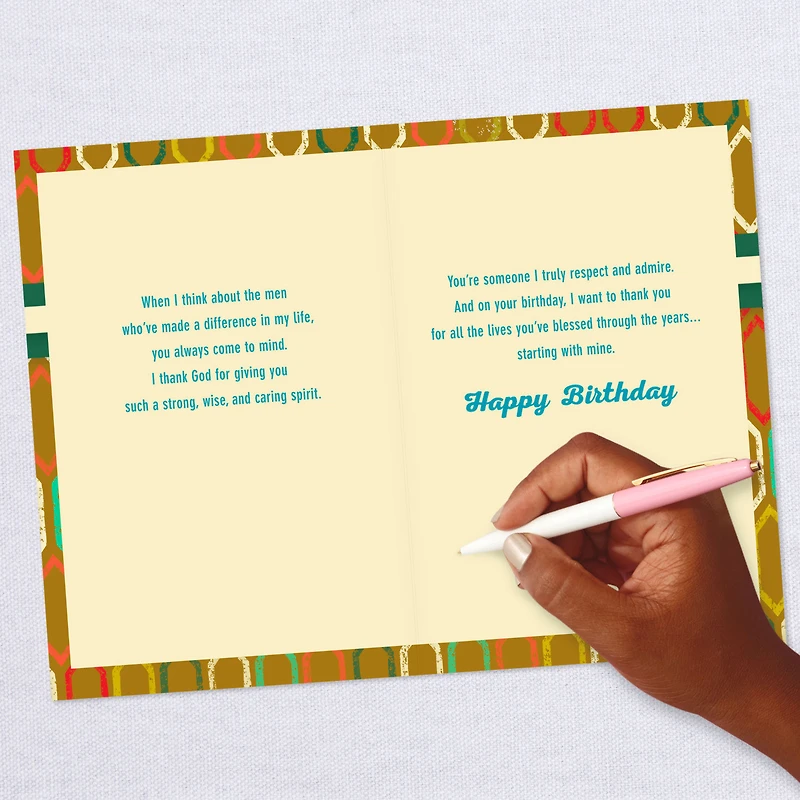 When I think about the men
who've made a difference in my life,
you always come to mind.
I thank God for giving you
such a strong, wise, and caring spirit.
You're someone I truly respect and admire.
And on your birthday, I want to thank you
for all the lives you've blessed through the years...
starting with mine.
Happy Birthday